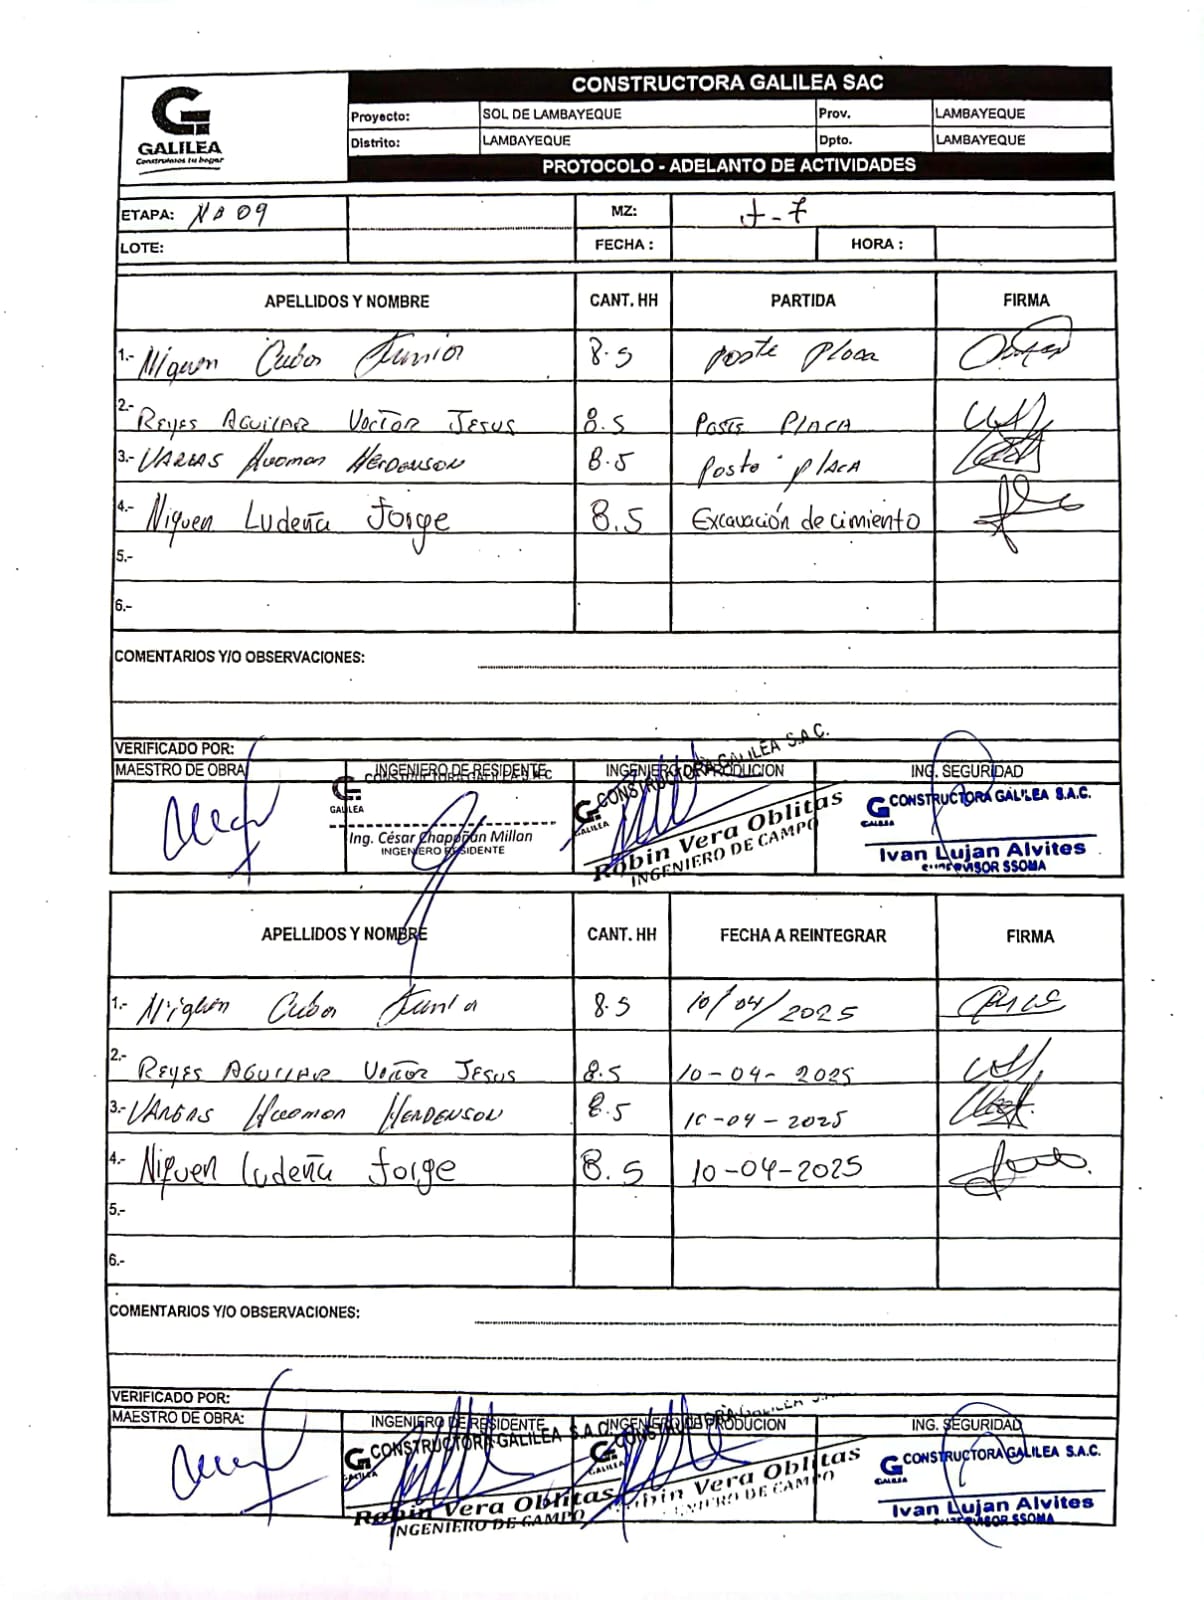 CONSTRUCTORA GALILEA SAC
GALILEA
Construimos tu hogar
Proyecto: SOL DE LAMBAYEQUE Prov. LAMBAYEQUE
Distrito: LAMBAYEQUE Dpto. LAMBAYEQUE
PROTOCOLO - ADELANTO DE ACTIVIDADES
ETAPA: NB 09 MZ: J-7
LOTE: FECHA : HORA :
APELLIDOS Y NOMBRE CANT. HH PARTIDA FIRMA
1.- Niquen Cubas Junior 8.5 poste placa
2.- REYES AGUILAR VICTOR JESUS 8.5 POSTE PLACA
3.- VARGAS Huaman HENDERSON 8.5 Poste placa
4.- Niquen Ludeña Jorge 8.5 Excavación de cimiento
5.-
6.-
COMENTARIOS Y/O OBSERVACIONES:
VERIFICADO POR:
MAESTRO DE OBRA INGENIERO DE RESIDENTE INGENIERO DE PRODUCION ING. SEGURIDAD
CONSTRUCTORA GALILEA S.A.C
GALILEA
Ing. César Chapoñan Millan
INGENIERO RESIDENTE
CONSTRUCTORA GALILEA S.A.C.
GALILEA
Robin Vera Oblitas
INGENIERO DE CAMPO
CONSTRUCTORA GALILEA S.A.C.
GALILEA
Ivan Lujan Alvites
SUPERVISOR SSOMA
APELLIDOS Y NOMBRE CANT. HH FECHA A REINTEGRAR FIRMA
1.- Niquen Cubas Junior 8.5 10/04/2025
2.- REYES AGUILAR VICTOR JESUS 8.5 10-04-2025
3.- VARGAS Huaman HENDERSON 8.5 10-04-2025
4.- Niquen Ludeña Jorge 8.5 10-04-2025
5.-
6.-
COMENTARIOS Y/O OBSERVACIONES:
VERIFICADO POR:
MAESTRO DE OBRA: INGENIERO DE RESIDENTE INGENIERO DE PRODUCION ING. SEGURIDAD
CONSTRUCTORA GALILEA S.A.C.
GALILEA
Robin Vera Oblitas
INGENIERO DE CAMPO
CONSTRUCTORA GALILEA S.A.
GALILEA
Robin Vera Oblitas
INGENIERO DE CAMPO
CONSTRUCTORA GALILEA S.A.C.
GALILEA
Ivan Lujan Alvites
SUPERVISOR SSOMA